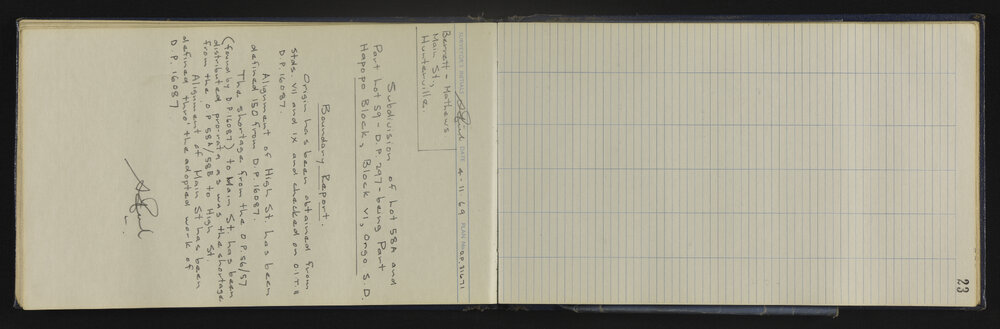 SURVEYORS INITIALS DATE 4.11.69 PLAN No D.P. 31671
Barrett - Mathews
Main St.,
Hunterville.
Subdivision of Lot 58A and
Part Lot 59 - D.P. 297 - being Part
Hapopo Block, Block VI, Ongo S.D.
Boundary Report.
Origin has been obtained from
Stds VII and IX and checked on O.I.T. II
D.P. 16087.
Alignment of High St. has been
defined 150 from D.P. 16087.
The shortage from the O.P. 56/57
(found by D.P. 16087) to Main St. has been
distributed pro-rata as was the shortage
from the O.P. 58A/58B to High St.
Alignment of Main St. has been
defined thro' the adopted work of
D.P. 16087
23